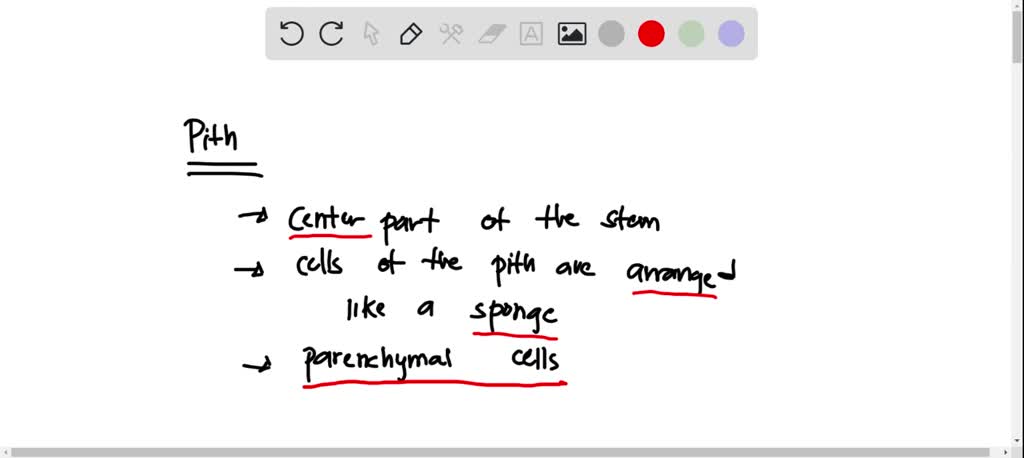 Pith
→ Center part of the stem
→ cells of the pith are arranged
like a sponge
→ parenchymal cells